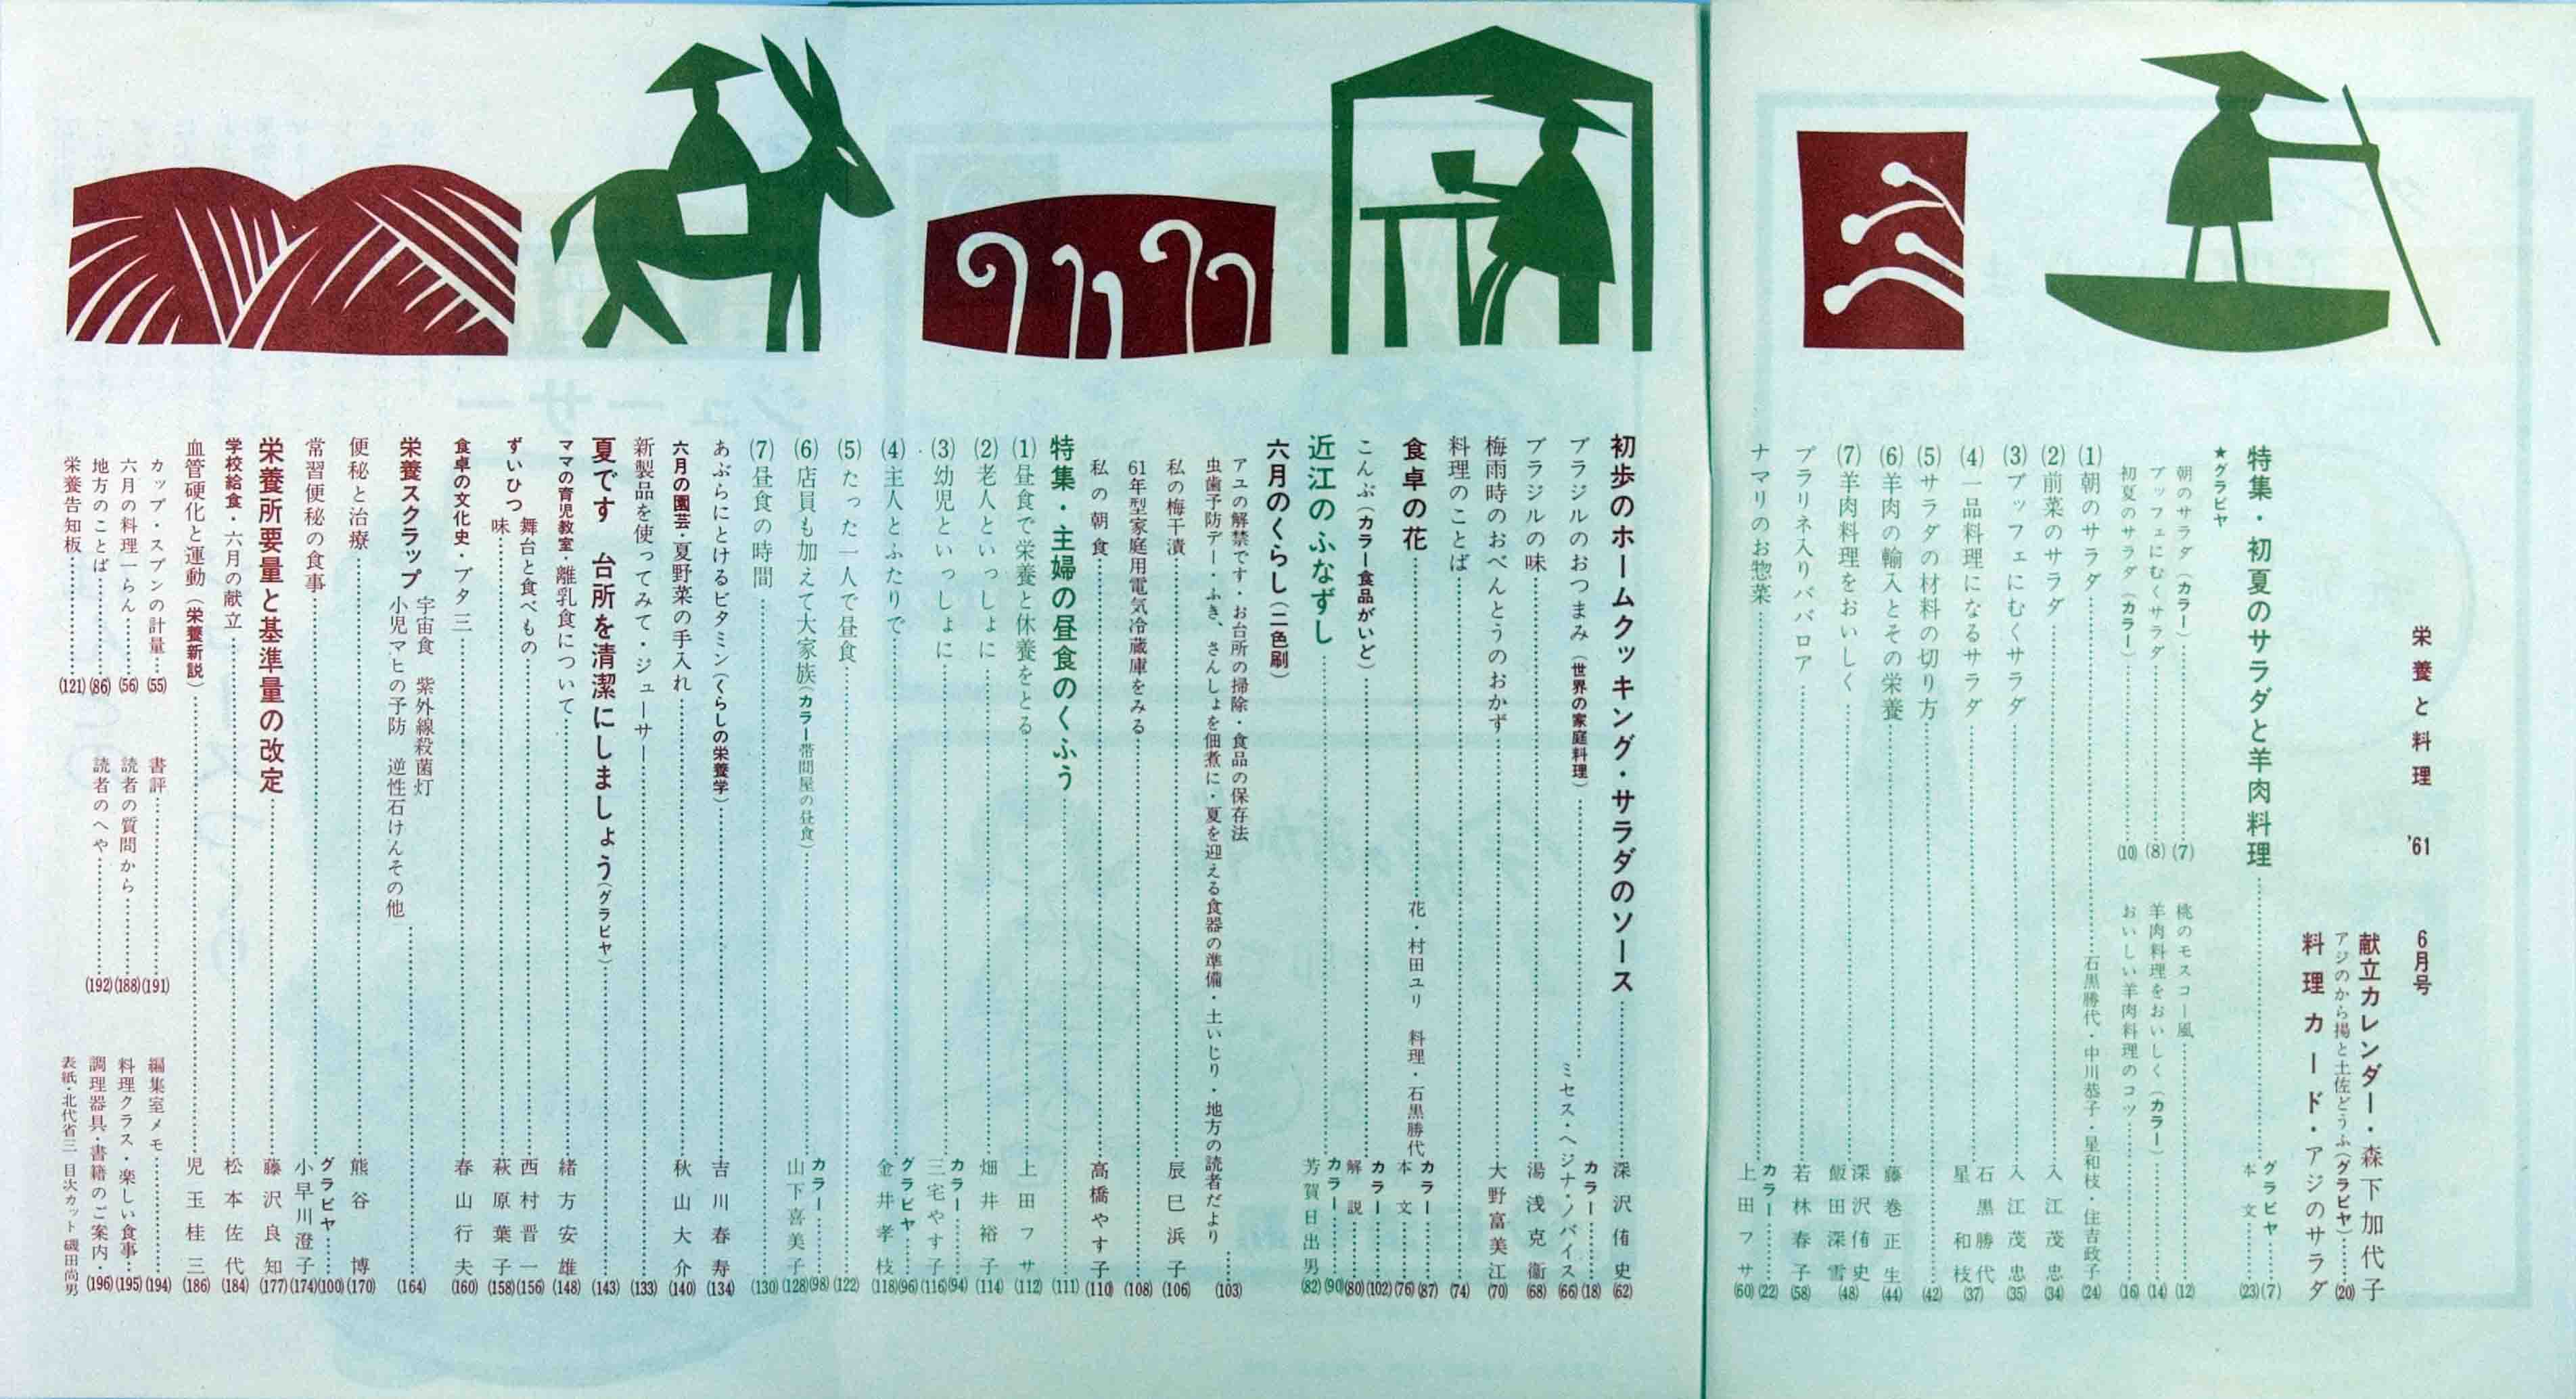 栄養と料理　'61　6月号
献立カレンダー・森下加代子
アジのから揚と土佐どうふ(グラビヤ)……(20)
料理カード・アジのサラダ
特集・初夏のサラダと羊肉料理……グラビヤ……(7) 本文……(23)
★グラビヤ
朝のサラダ(カラー)……(7)
ブッフェにむくサラダ……(8)
初夏のサラダ(カラー)……(10)
桃のモスコー風……(12)
羊肉料理をおいしく(カラー)……(14)
おいしい羊肉料理のコツ……(16)
(1)朝のサラダ……石黒勝代・中川恭子・星和枝・住吉政子(24)
(2)前菜のサラダ……入江茂忠(34)
(3)ブッフェにむくサラダ……入江茂忠(35)
(4)一品料理になるサラダ……石黒勝代 星和枝(37)
(5)サラダの材料の切り方……(42)
(6)羊肉の輸入とその栄養……藤巻正生(44)
(7)羊肉料理をおいしく……深沢侑史 飯田深雪(48)
プラリネ入りババロア……若林春子(58)
ナマリのお惣菜……カラー……(22) 上田フサ(60)
初歩のホームクッキング・サラダのソース……深沢侑史(62)
ブラジルのおつまみ(世界の家庭料理)……カラー……(18) ミセス・ヘジナ・ノバイス(66)
ブラジルの味……湯浅克衞(68)
梅雨時のおべんとうのおかず……大野富美江(70)
料理のことば……(74)
食卓の花……花・村田ユリ　料理・石黒勝代　カラー……(87) 本文……(76)
こんぶ(カラー食品がいど)……カラー……(102) 解説……(80)
近江のふなずし……カラー……(90) 芳賀日出男(82)
六月のくらし(二色刷)
アユの解禁です・お台所の掃除・食品の保存法
虫歯予防デー・ふき、さんしょを佃煮に・夏を迎える食器の準備・土いじり・地方の読者だより……(103)
私の梅干漬……辰巳浜子(106)
61年型家庭用電気冷蔵庫をみる……(108)
私の朝食……高橋やす子(110)
特集・主婦の昼食のくふう……(111)
(1)昼食で栄養と休養をとる……上田フサ(112)
(2)老人といっしょに……畑井裕子(114)
(3)幼児といっしょに……カラー……(94) 三宅やす子(116)
(4)主人とふたりで……グラビヤ……(96) 金井孝枝(118)
(5)たった一人で昼食……(122)
(6)店員も加えて大家族(カラー帯問屋の昼食)……カラー……(98) 山下喜美子(128)
(7)昼食の時間……(130)
あぶらにとけるビタミン(くらしの栄養学)……吉川春寿(134)
六月の園芸・夏野菜の手入れ……秋山大介(140)
新製品を使ってみて・ジューサー……(133)
夏です　台所を清潔にしましょう(グラビヤ)……(143)
ママの育児教室・離乳食について……緒方安雄(148)
ずいひつ
舞台と食べもの……西村晋一(156)
味……萩原葉子(158)
食卓の文化史・ブタ三……春山行夫(160)
栄養スクラップ
宇宙食　紫外線殺菌灯
小児マヒの予防　逆性石けんその他……(164)
便秘と治療……熊谷博(170)
常習便秘の食事……グラビヤ……(100) 小早川澄子(174)
栄養所要量と基準量の改定……藤沢良知(177)
学校給食・六月の献立……松本佐代(184)
血管硬化と運動(栄養新説)……児玉桂三(186)
カップ・スプンの計量……(55)
六月の料理一らん……(56)
地方のことば……(86)
栄養告知板……(121)
書評……(191)
読者の質問から……(188)
読者のへや……(192)
編集室メモ……(194)
料理クラス・楽しい食事……(195)
調理器具・書籍のご案内・(196)
表紙・北代省三　目次カット　磯田尚男